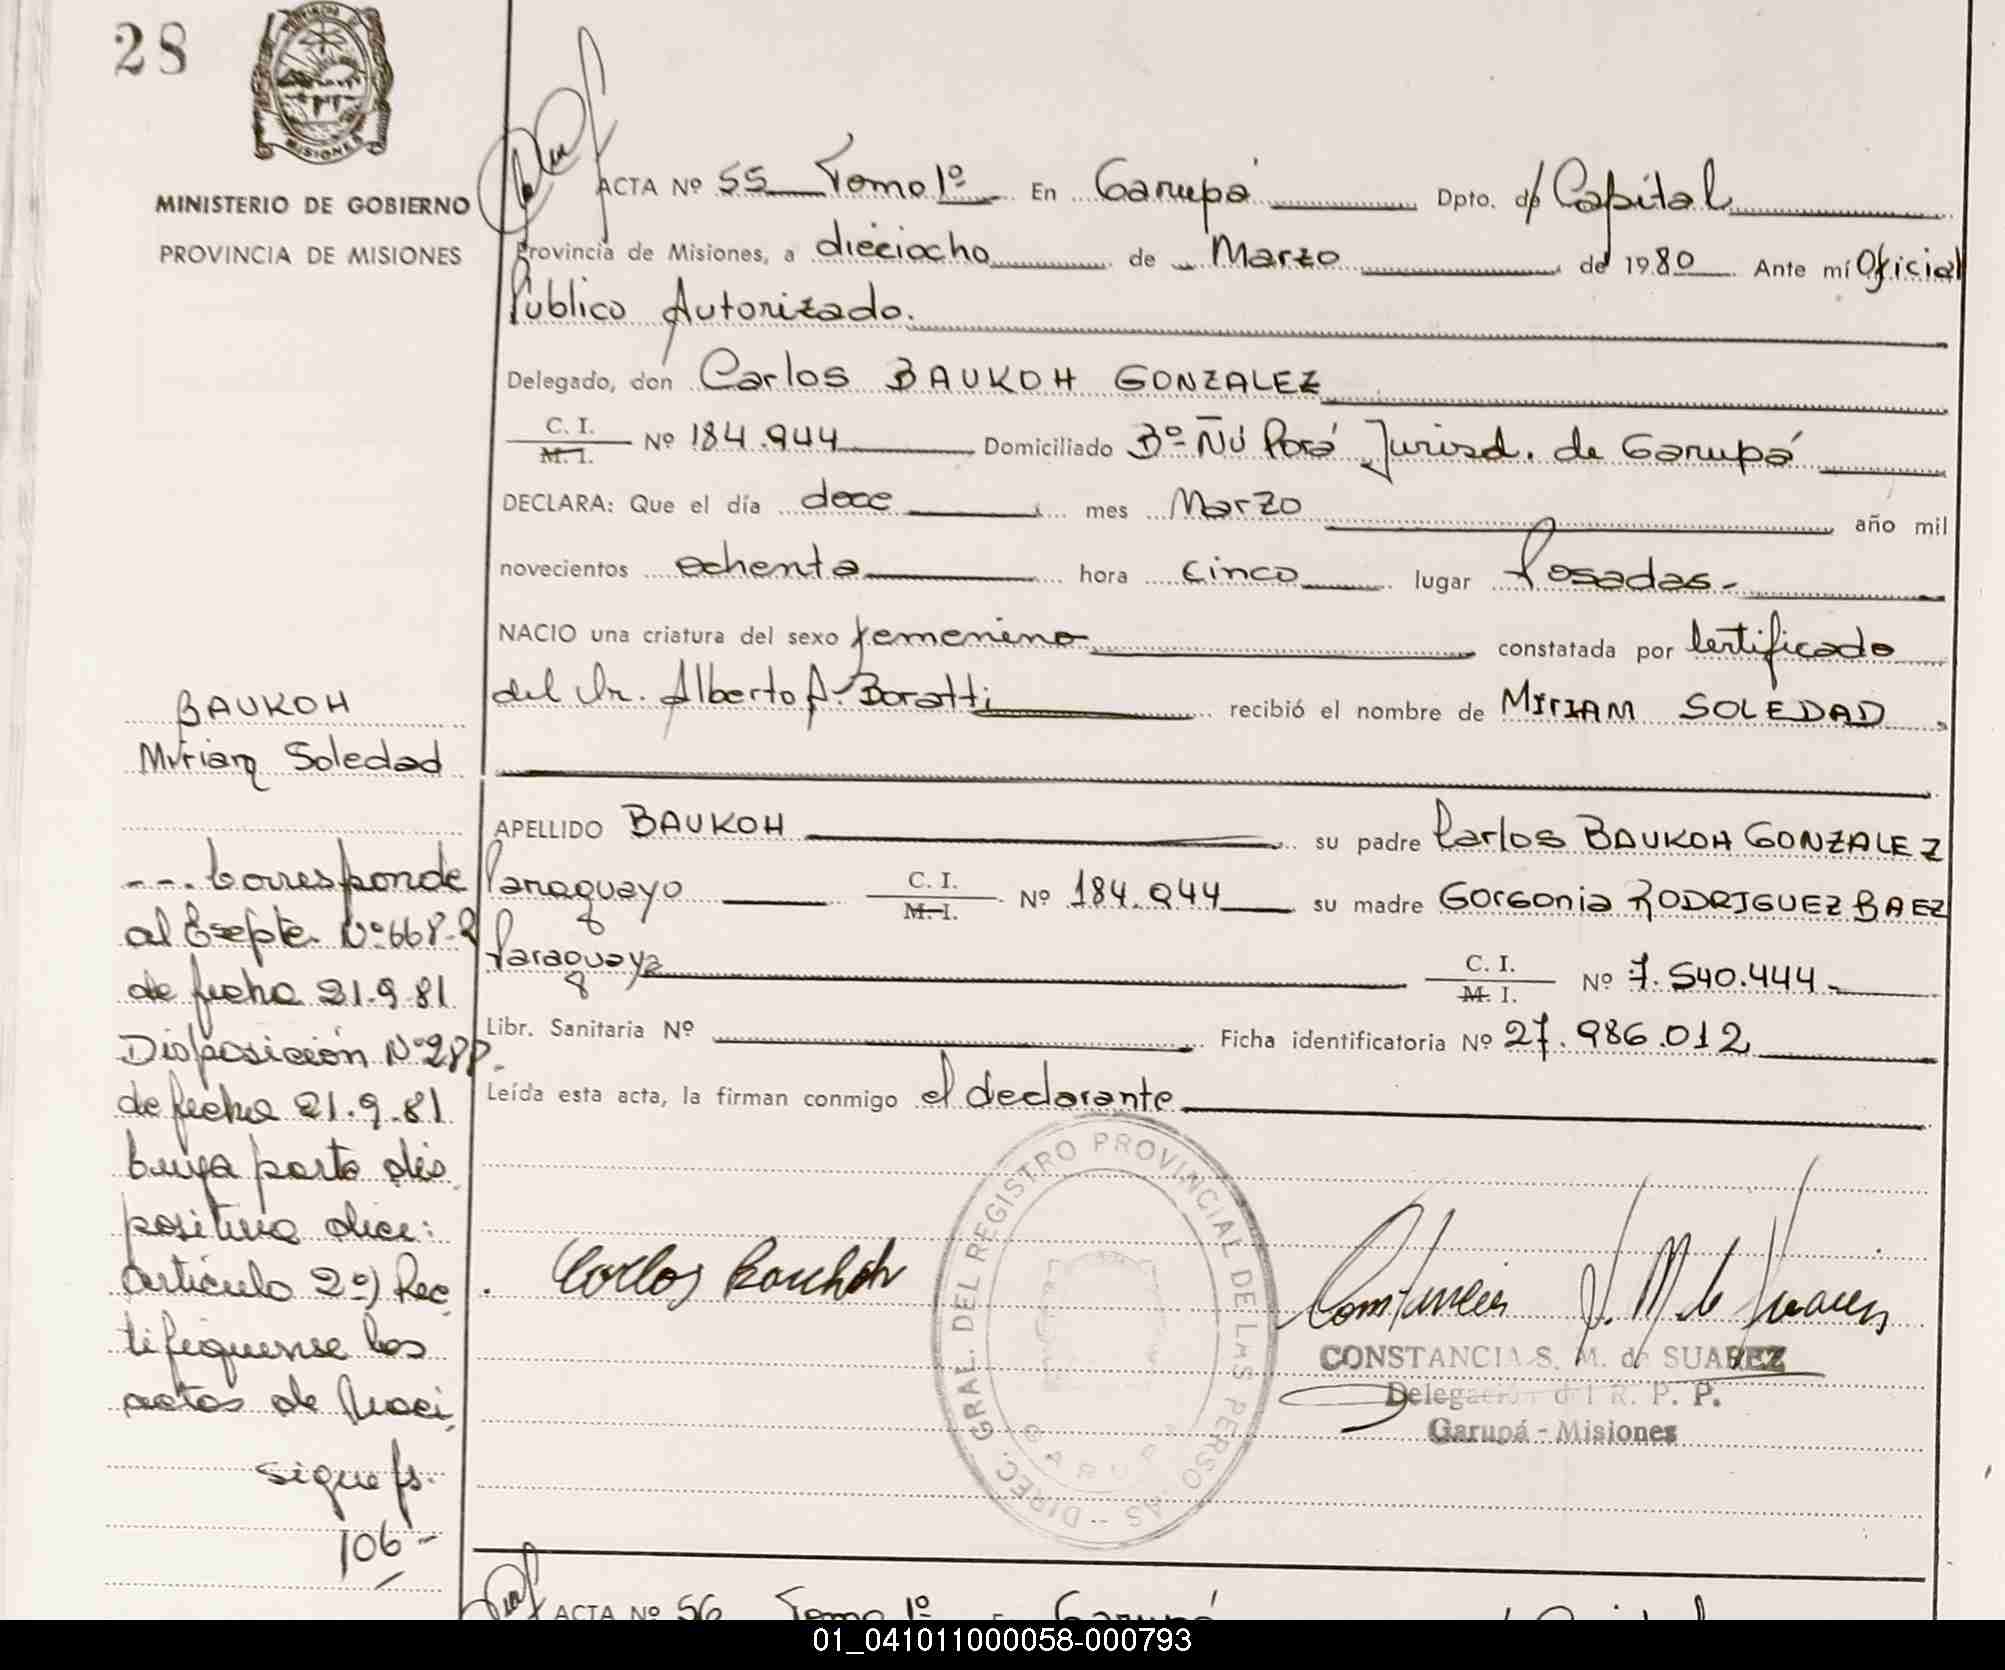 28
PROVINCIA DE
MISIONES
MINISTERIO DE GOBIERNO
PROVINCIA DE MISIONES
ACTA Nº 55 Tomo 1º En Garupá Dpto. de Capital
Provincia de Misiones, a dieciocho de Marzo de 1980 Ante mí Oficial
Público Autorizado.
Delegado, don Carlos BAUKOH GONZALEZ
C. I.
M. I. Nº 184.944 Domiciliado Bº Ñú Porá Jurisd. de Garupá
DECLARA: Que el día doce mes Marzo año mil
novecientos ochenta hora cinco lugar Posadas.-
NACIO una criatura del sexo femenino constatada por Certificado
del Dr. Alberto A. Boratti recibió el nombre de MIRIAM SOLEDAD
BAUKOH
Miriam Soledad
APELLIDO BAUKOH su padre Carlos BAUKOH GONZALEZ
Paraguayo C. I.
M. I. Nº 184.944 su madre Gorgonia RODRIGUEZ BAEZ
Paraguaya C. I.
M. I. Nº 7.540.444.-
Libr. Sanitaria Nº Ficha identificatoria Nº 27.986.012
Leída esta acta, la firman conmigo el declarante
---Corresponde
al Expte. Nº 668-R
de fecha 21.9.81
Disposición Nº 288.
de fecha 21.9.81
Cuya parte dis
positiva dice:
Artículo 2º) Rec
tifiquense las
actas de Naci
sigue fs.
106-
Carlos Baukoh
DIREC. GRAL. DEL REGISTRO PROVINCIAL DE LAS PERSONAS
GARUPA
CONSTANCIA S. M. de SUAREZ
Delegación del R. P. P.
Garupá - Misiones
ACTA Nº 56 Tomo 1º En Garupá Capital
01_041011000058-000793